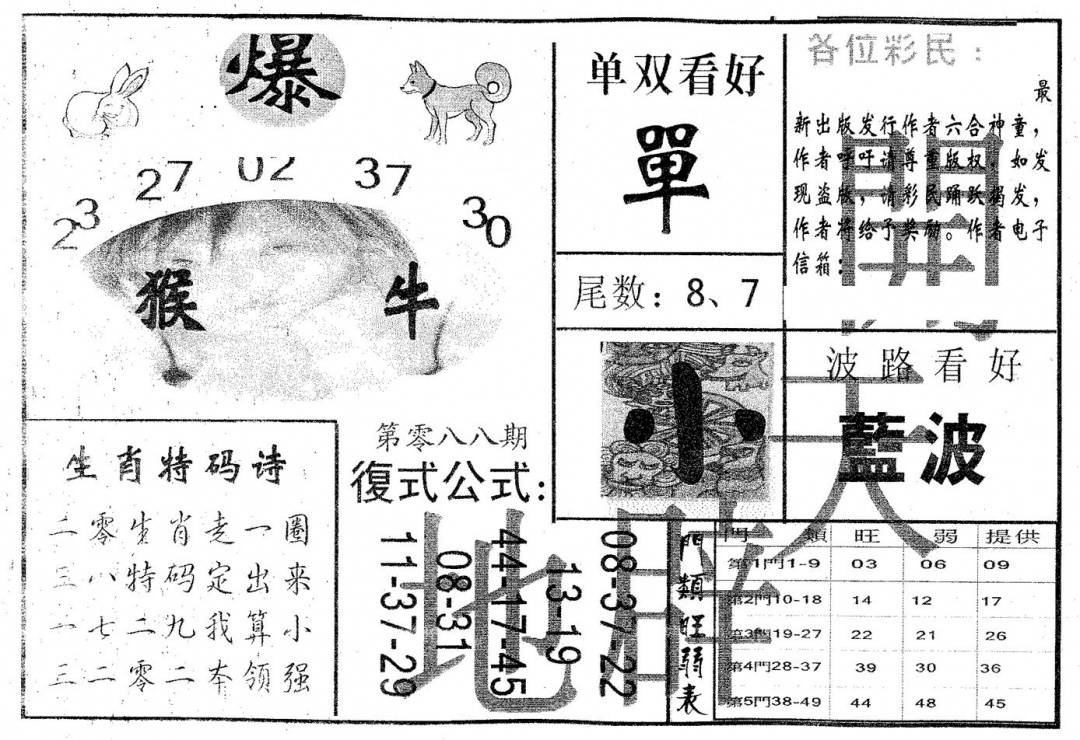 爆
23 27 02 37 30
猴 牛
单双看好
單
尾数：8、7
小
各位彩民：
最
新出版发行作者六合神童，
作者呼吁请尊重版权，如发
现盗版，请彩民踊跃揭发，
作者将给予奖励。作者电子
信箱：
波路看好
藍波
生肖特码诗
二零生肖走一圈
三八特码定出来
一七二九我算小
三二零二本领强
第零八八期
復式公式:
11-37-29
08-31
44-17-45
13-19
08-37-22
門類旺弱表
門 類 旺 弱 提供
第1門1-9 03 06 09
第2門10-18 14 12 17
第3門19-27 22 21 26
第4門28-37 39 30 36
第5門38-49 44 48 45
天
地